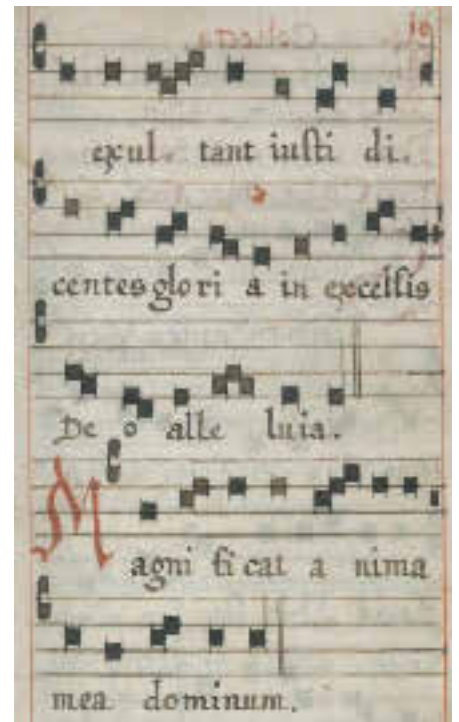 exul. tant iusti di.
centes glo ri a in excelsis
De o alle luia.
Magni fi cat a nima
mea dominum.